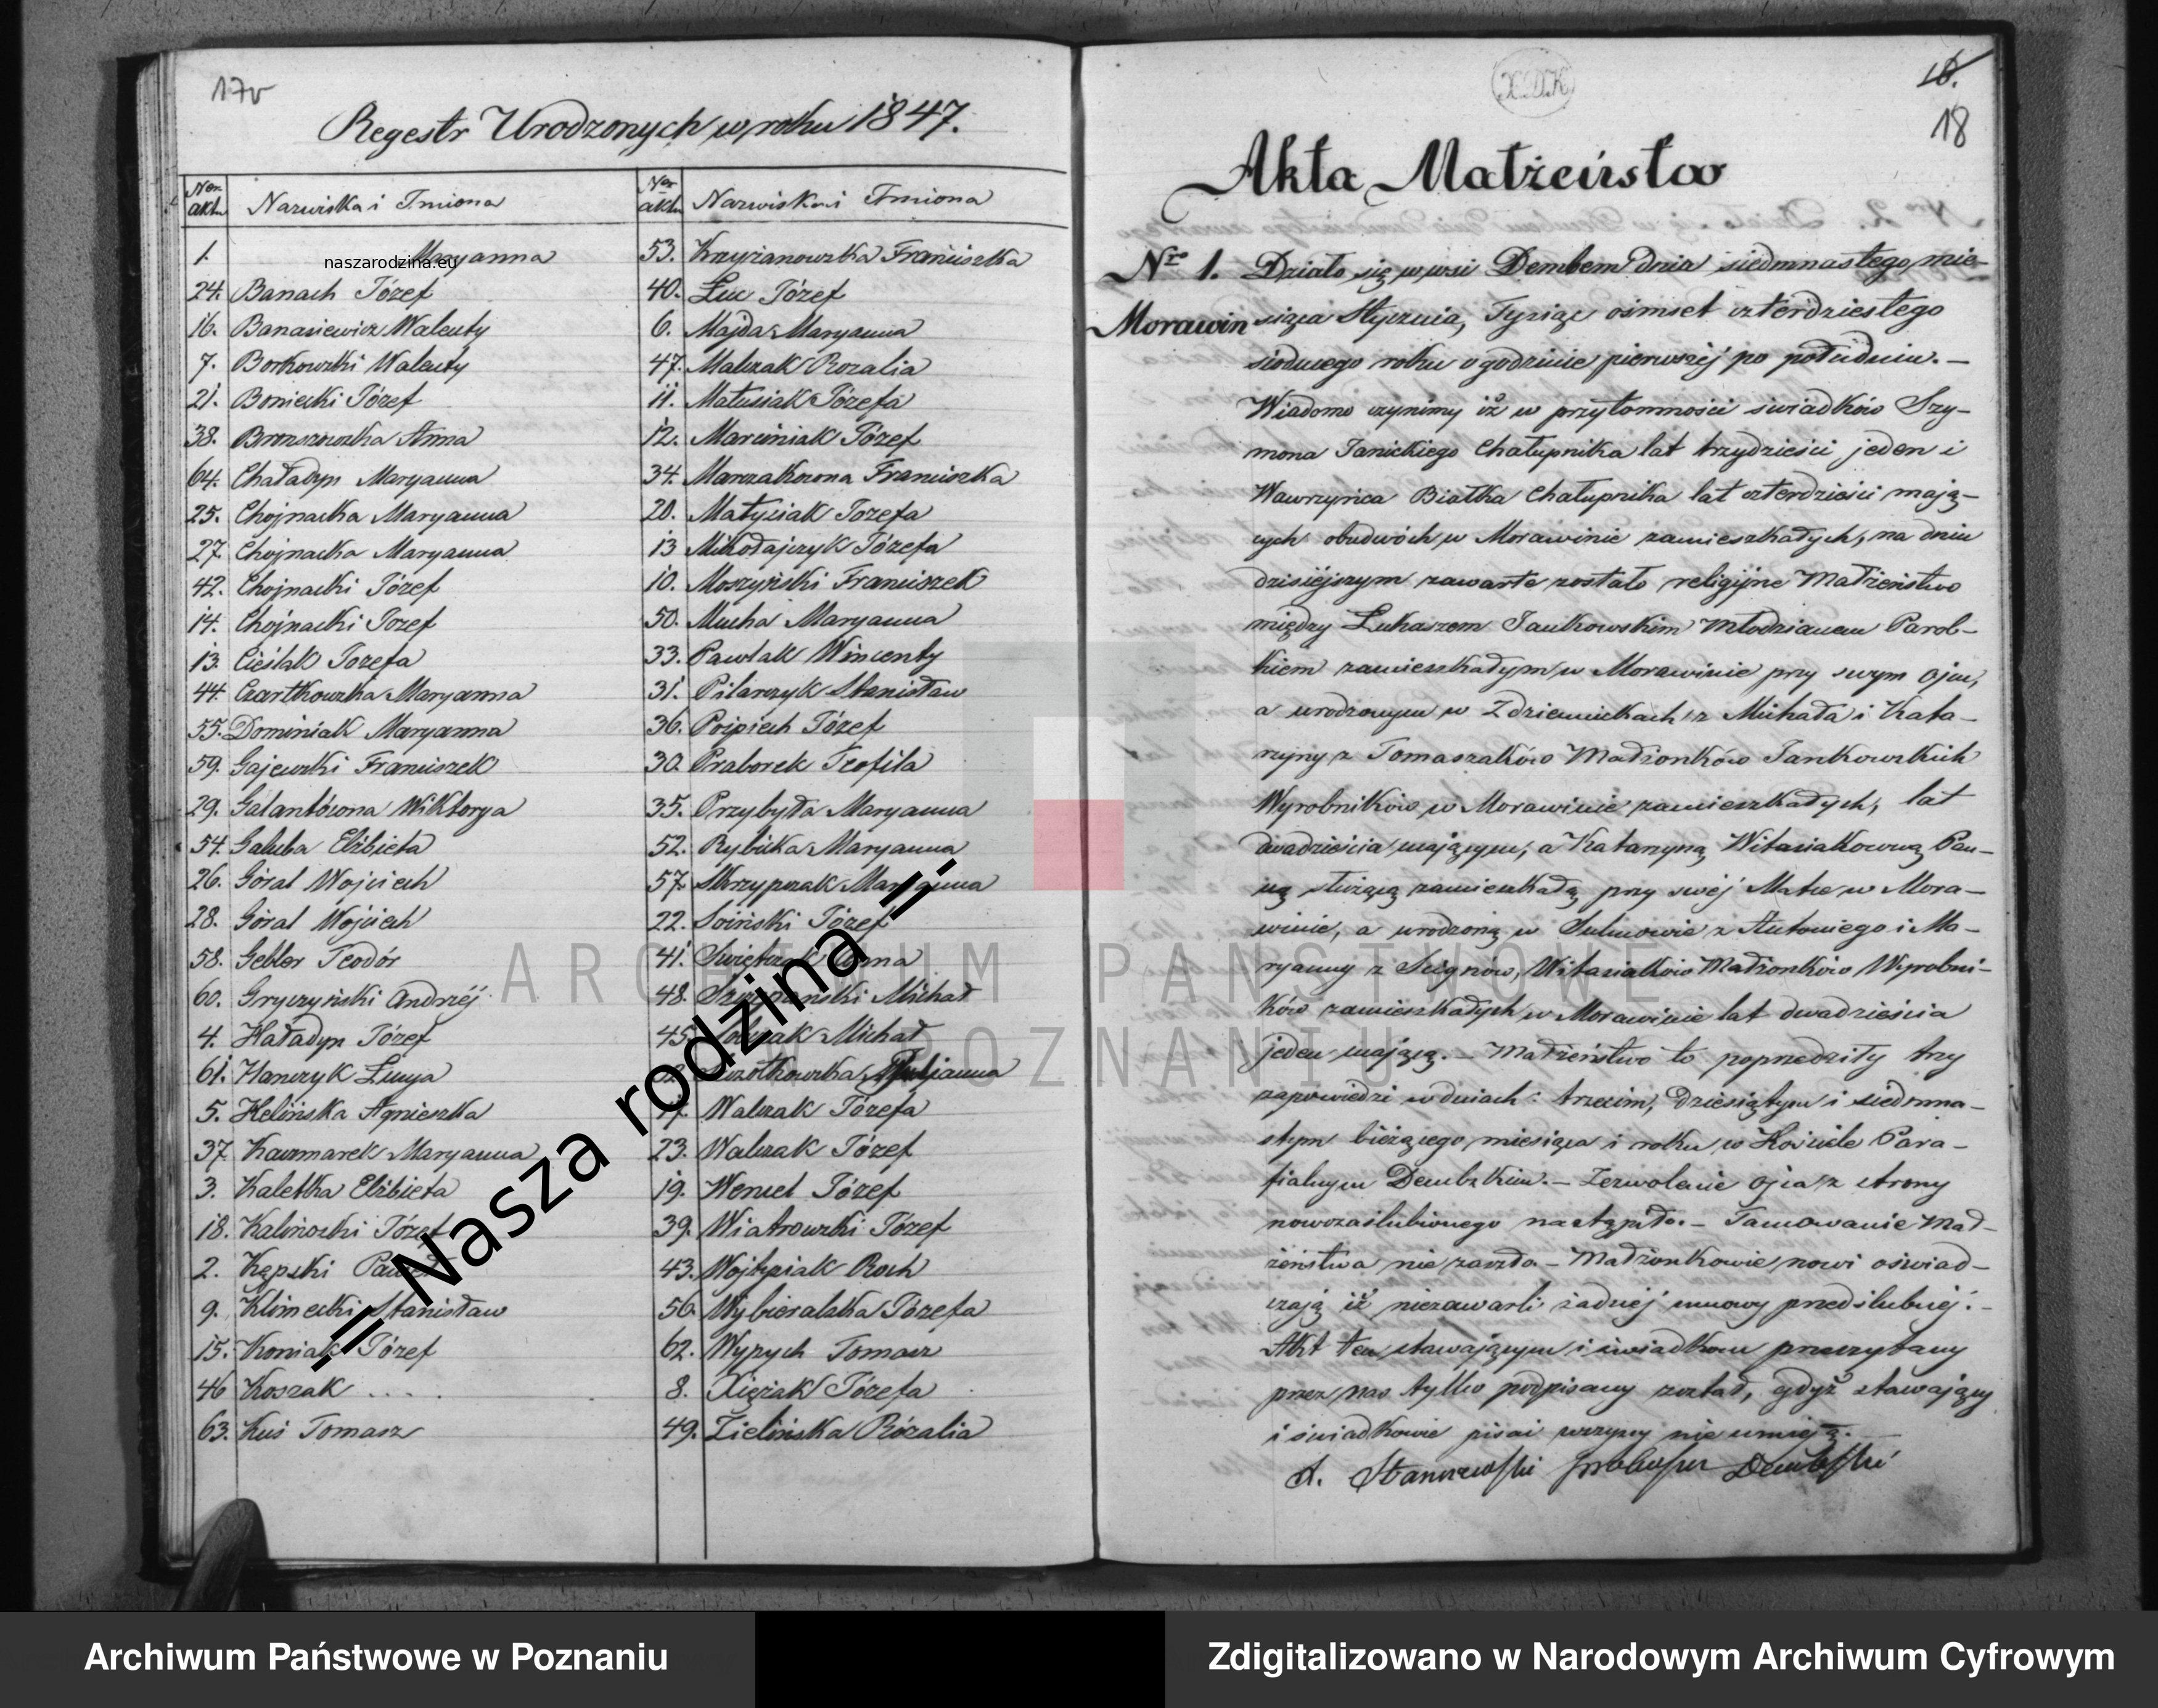 17v
Regestr Urodzonych w roku 1847.
Ner. aktu Nazwiska i Imiona
1. Maryanna
naszarodzina.eu
24. Banach Józef
16. Banasiewicz Walenty
7. Borkowski Walenty
21. Boniecki Józef
38. Anna
64. Chaładyn Maryanna
25. Chojnacka Maryanna
27. Chojnacka Maryanna
42. Chojnacki Józef
14. Chojnacki Józef
13. Cieślak Józefa
44. Czartkowska Maryanna
55. Dominiak Maryanna
59. Gajewski Franciszek
29. Galantówona Wiktorya
54. Galuba Elżbieta
26. Góral Wojciech
28. Góral Wojciech
58. Gebler Teodór
60. Gryczyński Andrzéj
4. Haładyn Józef
61. Hanczyk Łucya
5. Helińska Agnieszka
37. Kaczmarek Maryanna
3. Kaletka Elżbieta
18. Kalinoski Józef
2. Kępski Paweł
9. Klimecki Stanisław
15. Koniak Józef
46 Koszak . . . .
63. Kuś Tomasz
Ner aktu Nazwiska i Imiona
53. Krzyżanowska Franciszka
40. Luc Józef
6. Majda Maryanna
47. Malczak Rozalia
11. Matusiak Józefa
12. Marciniak Józef
34. Marczakowna Franciszka
20. Matysiak Jozefa
13 Mikołajczyk Józefa
10. Moszyński Franciszek
50. Mucha Maryanna
33. Pawlak Wincenty
31. Pilarczyk Stanisław
36. Pośpiech Józef
30. Praborek Teofila
35. Przybyła Maryanna
52. Rybicka Maryanna
57. Skrzypczak Maryanna
22. Soiński Józef
41. Świętczak Anna
48. Szczepański Michał
45. Michał
Juljanna
17. Walczak Józefa
23. Walczak Józef
19. Wencel Józef
39. Wiatrowski Józef
43. Wojtysiak Roch
56. Wybieralska Józefa
62. Wypych Tomasz
8. Xiężak Józefa
49. Zielińska Rózalia
X.D.K
16.
18
Akta Małżeństw
Nro 1. Działo się w wsi Dembem dnia siedmnastego mie-
Morawin siąca Stycznia, Tysiąc ośmset czterdziestego
siodmego roku o godzinie pierwszéj po południu. —
Wiadomo czynimy iż w przytomności świadków Szy-
mona Janickiego Chałupnika lat trzydzieści jeden i
Wawrzyńca Białka Chałupnika lat czterdzieści mają-
cych obudwóch w Morawinie zamieszkałych, na dniu
dzisiéjszym zawarte zostało religijne Małżeństwo
między Łukaszem Jankowskim Młodzianem Parob-
kiem zamieszkałym w Morawinie przy swym Ojcu,
a urodzonym w Zdzienickach z Michała i Kata-
rzyny z Tomaszaków Małżonków Jankowskich
Wyrobników w Morawinie zamieszkałych, lat
dwadzieścia mającym, a Katarzyną Witasiakowną Pan-
ną służącą zamieszkałą przy swéj Matce w Mora-
winie, a urodzoną w Sulmowie z Antoniego i Ma-
ryanny z Witasiaków Małżonków Wyrobni-
ków zamieszkałych w Morawinie lat dwadzieścia
jeden mającą. — Małżeństwo to poprzedziły trzy
zapowiedzi w dniach: trzecim, dziesiątym i siedmna-
stym bieżącego miesiąca i roku w Kościele Para-
fialnym Dembskim. — Zezwolenie ojca z strony
nowozaślubionego nastąpiło. — Tamowanie Mał-
żeństwa nie zaszło. — Małżonkowie nowi oświad-
czają iż niezawarli żadnéj umowy przedślubnéj. —
Akt ten stawającym i świadkom przeczytany
przez nas tylko podpisany został, gdyż stawający
i świadkowie pisać wszyscy nie umieją. —
A. Stanuszewski Proboszcz Dembski
ARCHIWUM PAŃSTWOWE
W POZNANIU
=| Nasza rodzina |=
Archiwum Państwowe w Poznaniu
Zdigitalizowano w Narodowym Archiwum Cyfrowym